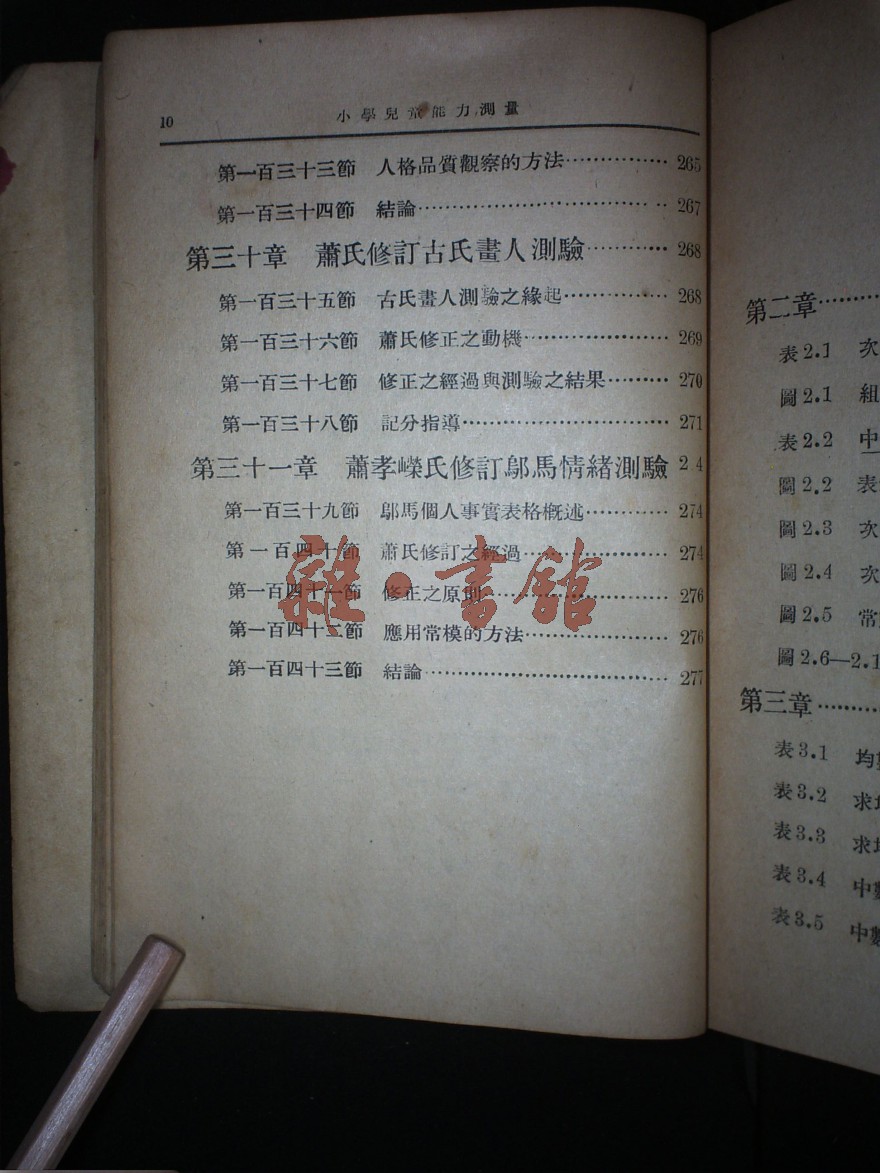 10
小學兒童能力測量
第一百三十三節 人格品質觀察的方法⋯⋯⋯⋯⋯ 265
第一百三十四節 結論⋯⋯⋯⋯⋯⋯⋯⋯⋯⋯⋯⋯ 267
第三十章 蕭氏修訂古氏畫人測驗⋯⋯⋯⋯ 268
第一百三十五節 古氏畫人測驗之緣起⋯⋯⋯⋯⋯ 268
第一百三十六節 蕭氏修正之動機⋯⋯⋯⋯⋯⋯⋯ 269
第一百三十七節 修正之經過與測驗之結果⋯⋯⋯ 270
第一百三十八節 記分指導⋯⋯⋯⋯⋯⋯⋯⋯⋯⋯ 271
第三十一章 蕭孝嶸氏修訂鄔馬情緒測驗 2 4
第一百三十九節 鄔馬個人事實表格概述⋯⋯⋯⋯ 274
第一百四十節 蕭氏修訂之經過⋯⋯⋯⋯⋯⋯⋯ 274
第一百四十一節 修正之原則⋯⋯⋯⋯⋯⋯⋯⋯⋯ 276
第一百四十二節 應用常模的方法⋯⋯⋯⋯⋯⋯⋯ 276
第一百四十三節 結論⋯⋯⋯⋯⋯⋯⋯⋯⋯⋯⋯⋯ 277
雜·書館
第二章⋯⋯⋯
表2.1 次
圖2.1 組
表2.2 中
圖2.2 表
圖2.3 次
圖2.4 次
圖2.5 常
圖2.6—2.1
第三章⋯⋯⋯
表3.1 均
表3.2 求
表3.3 求
表3.4 中
表3.5 中